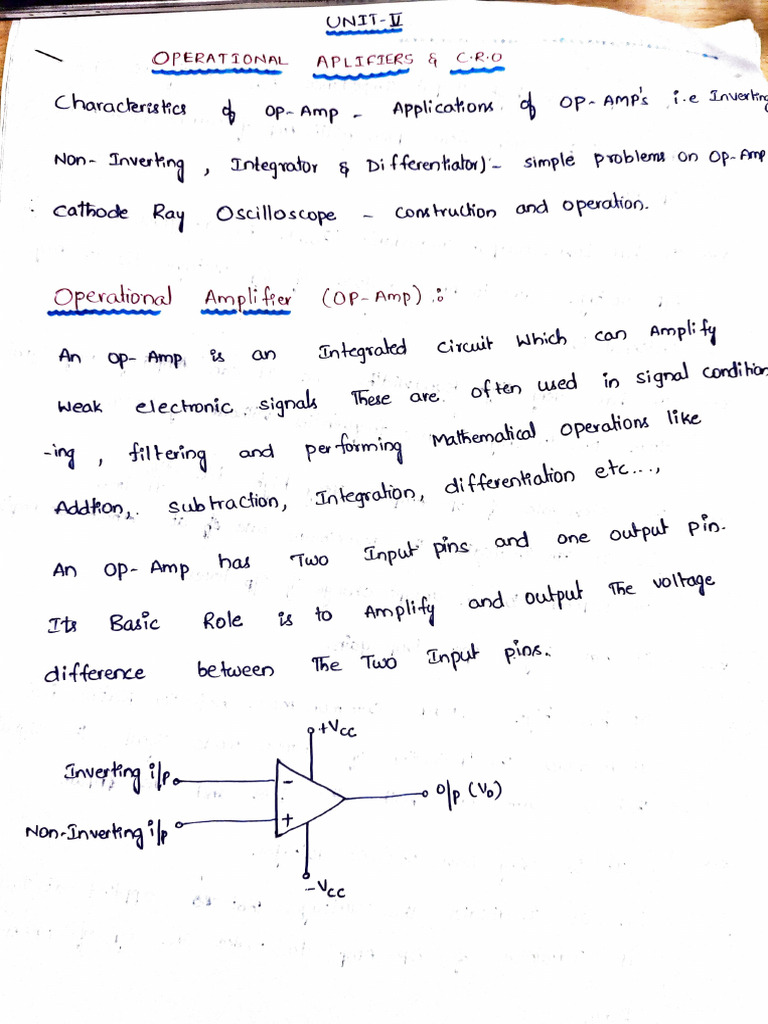 UNIT-V
OPERATIONAL APLIFIERS & C.R.O
Characteristics of OP-Amp - Applications of OP-AMP's i.e Inverting
Non-Inverting, Integrator & Differentiator) - simple problems on Op-Amp
Cathode Ray Oscilloscope - construction and operation.
Operational Amplifier (OP-Amp) :
An OP-Amp is an Integrated Circuit which can Amplify
weak electronic signals These are often used in signal condition
-ing, filtering and performing Mathematical operations like
Addtion, subtraction, Integration, differentiation etc...,
An OP-Amp has Two Input pins and one output pin.
Its Basic Role is to Amplify and output The voltage
difference between The Two Input pins.
+Vcc
Inverting i/p
-
o/p (Vo)
Non-Inverting i/p
+
-Vcc